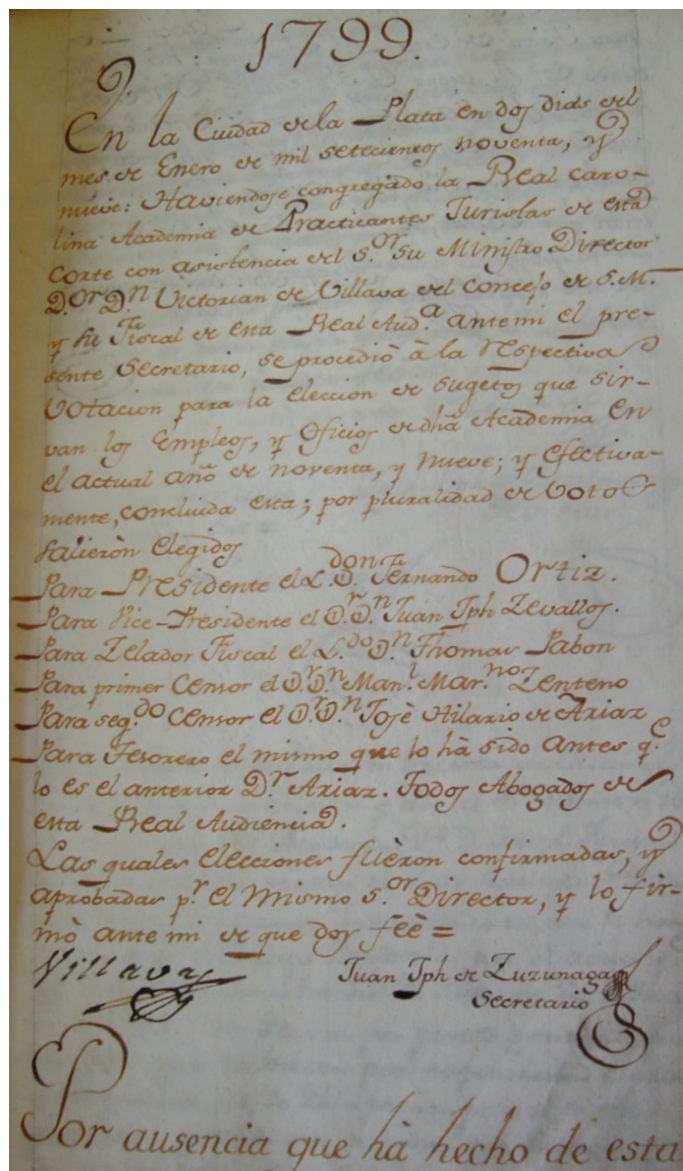 1799.
En la Ciudad de la Plata en dos dias del
mes de Enero de mil setecientos noventa, y
nueve: Haviendose congregado la Real Caro-
lina Academia de Practicantes Juristas de esta
Corte con asistencia del S.or Su Ministro Director
D.or D.n Victorian de Villava del Concejo de S.M.
y su Fiscal de esta Real Aud.a ante mi el pre-
sente Secretario, se procediò à la Respectiva
Votacion para la eleccion de sugetos que sir-
van los Empleos, y Oficios de dhã Academia en
el actual año de noventa, y nueve; y efectiva-
mente, concluida esta; por pluralidad de Votos
salieròn elegidos
Para Presidente el L.don D.n Fernando Ortiz.
Para Vice-Presidente el D.r D.n Juan Jph Zevallos.
Para Zelador Fiscal el L.do D.n Thomas Pabon
Para primer Censor el D.r D.n Man.l Mar.no Zenteno
Para seg.do Censor el D.r D.n Josè Hilario de Ariaz
Para Tesorero el mismo que lo hà sido antes q.e
lo es el anterior D.r Ariaz. Todos Abogados de
esta Real Audiencia.
Las quales Elecciones fuèron confirmadas, y
aprobadas p.r el mismo S.or Director, y lo fir-
mò ante mi de que doy feè =
Villava
Juan Jph de Zuzunaga
Secretario
Por ausencia que hà hecho de esta